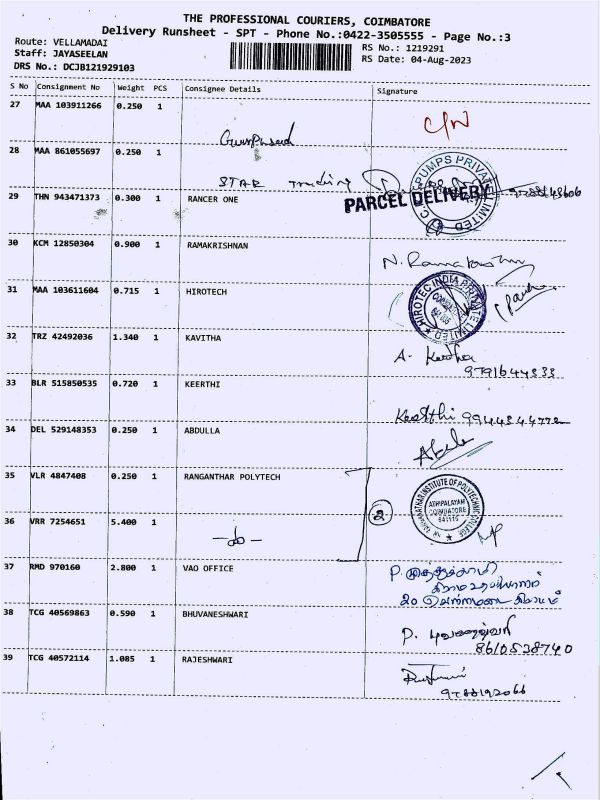 THE PROFESSIONAL COURIERS, COIMBATORE
Delivery Runsheet - SPT - Phone No.:0422-3505555 - Page No.:3
Route: VELLAMADAI
RS No.: 1219291
Staff: JAYASEELAN
RS Date: 04-Aug-2023
DRS No.: DCJB121929103
S No Consignment No Weight PCS Consignee Details Signature
27 MAA 103911266 0.250 1
C/N
28 MAA 861055697 0.250 1
STAR Trading
PUMPS PRIVATE LIMITED
PARCEL DELIVERY
29 THN 943471373 0.300 1 RANCER ONE
30 KCM 12850304 0.900 1 RAMAKRISHNAN
N. Ramakrishnan
31 MAA 103611604 0.715 1 HIROTECH
HIROTEC INDIA PRIVATE LIMITED
32 TRZ 42492036 1.340 1 KAVITHA
A.
9791644333
33 BLR 515850535 0.720 1 KEERTHI
Keerthi 9944344772
34 DEL 529148353 0.250 1 ABDULLA
35 VLR 4847408 0.250 1 RANGANTHAR POLYTECH
INSTITUTE OF POLYTECHNIC COLLEGE
ATHIPALAYAM
COIMBATORE
641110
2
36 VRR 7254651 5.400 1 -do-
37 RMD 970160 2.800 1 VAO OFFICE
P. முத்துச்சாமி
38 TCG 40569863 0.590 1 BHUVANESHWARI
P. புவனேஸ்வரி
8610538740
39 TCG 40572114 1.085 1 RAJESHWARI
9788192066